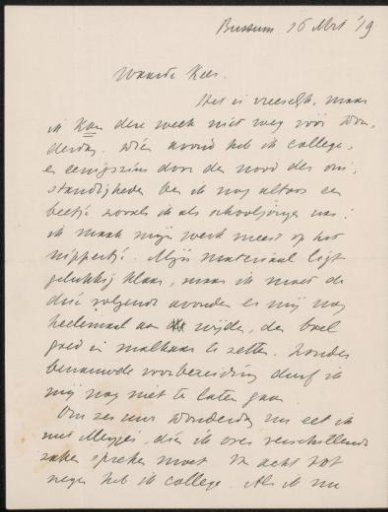 Bussum 16 Mrt '19
Waarde Kees.
Het is vreeselijk, maar
ik kan deze week niet weg vóór Don-
derdag. Dien avond heb ik college,
en eenigszins door den nood der om-
standigheden ben ik nog altoos een
beetje zooals ik als schooljongen was:
ik maak mijn werk meest op het
nippertje. Mijn materiaal ligt
gelukkig klaar, maar ik moet de
drie volgende avonden er mij nog
heelemaal aan wijden, den boel
goed in malkaar te zetten. Zonder
benauwde voorbereiding durf ik
mij nog niet te laten gaan.
Om zes uur Donderdag eet ik
met Meyjes, dien ik over verschillende
zaken spreken moet. Van acht tot
negen heb ik college. Als ik nu